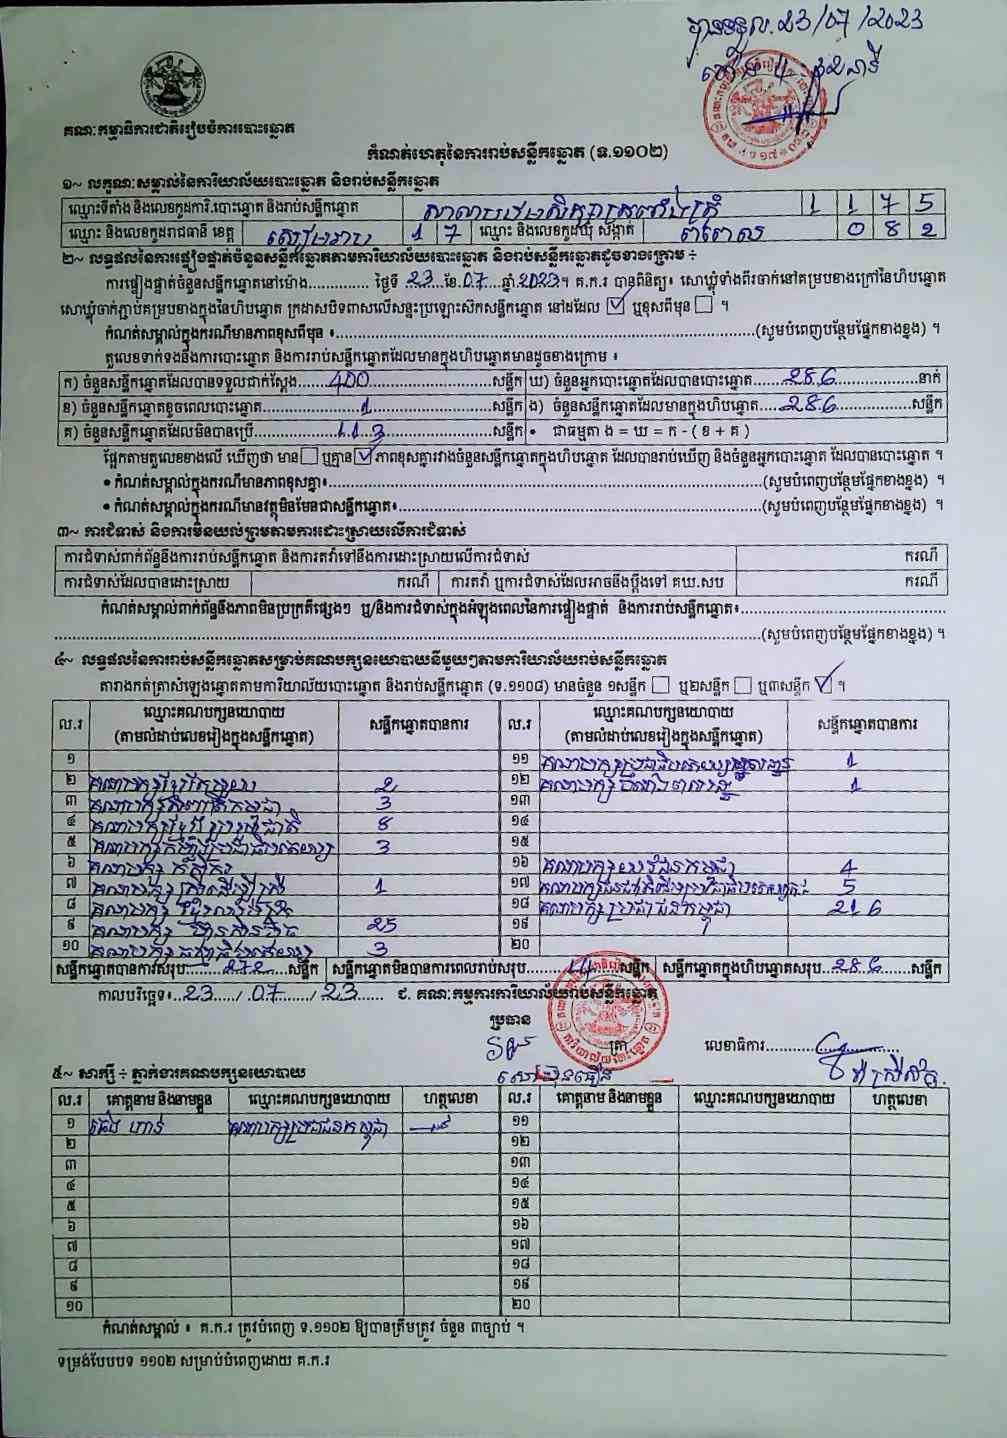 បានទទួល. 23/07/2023
គណៈកម្មាធិការជាតិរៀបចំការបោះឆ្នោត
កំណត់ហេតុនៃការរាប់សន្លឹកឆ្នោត (ទ.១១០២)
១~ លក្ខណៈសម្គាល់នៃការិយាល័យបោះឆ្នោត និងរាប់សន្លឹកឆ្នោត
ឈ្មោះទីតាំង និងលេខកូដការិ.បោះឆ្នោត និងរាប់សន្លឹកឆ្នោត សាលាបឋមសិក្សា 1 1 7 5
ឈ្មោះ និងលេខកូដរាជធានី ខេត្ត សៀមរាប 1 7 ឈ្មោះ និងលេខកូដឃុំ សង្កាត់ ពពេល 0 8 2
២~ លទ្ធផលនៃការផ្ទៀងផ្ទាត់ចំនួនសន្លឹកឆ្នោតតាមការិយាល័យបោះឆ្នោត និងរាប់សន្លឹកឆ្នោតដូចខាងក្រោម ÷
ការផ្ទៀងផ្ទាត់ចំនួនសន្លឹកឆ្នោតនៅម៉ោង............... ថ្ងៃទី 23 ខែ 07 ឆ្នាំ 2023។ គ.ក.រ បានពិនិត្យ៖ សោឃ្លុំទាំងពីរចាក់នៅគម្របខាងក្រៅនៃហិបឆ្នោត
សោឃ្លុំចាក់ភ្ជាប់គម្របខាងក្នុងនៃហិបឆ្នោត ក្រដាសបិទពាសលើសន្ទះប្រឡោះស៊កសន្លឹកឆ្នោត នៅដដែល ☑ ឬខុសពីមុន ☐ ។
កំណត់សម្គាល់ក្នុងករណីមានភាពខុសពីមុន ៖...............(សូមបំពេញបន្ថែមផ្នែកខាងខ្នង) ។
តួលេខទាក់ទងនឹងការបោះឆ្នោត និងការរាប់សន្លឹកឆ្នោតដែលមានក្នុងហិបឆ្នោតមានដូចខាងក្រោម ៖
ក) ចំនួនសន្លឹកឆ្នោតដែលបានទទួលជាក់ស្តែង.......400...............សន្លឹក ឃ) ចំនួនអ្នកបោះឆ្នោតដែលបានបោះឆ្នោត.......286...............នាក់
ខ) ចំនួនសន្លឹកឆ្នោតខូចពេលបោះឆ្នោត...............1...............សន្លឹក ង) ចំនួនសន្លឹកឆ្នោតដែលមានក្នុងហិបឆ្នោត.....286...............សន្លឹក
គ) ចំនួនសន្លឹកឆ្នោតដែលមិនបានប្រើ...............113...............សន្លឹក • ជាធម្មតា ង = ឃ = ក - ( ខ + គ )
ផ្អែកតាមតួលេខខាងលើ ឃើញថា មាន ☐ ឬគ្មាន ☑ ភាពខុសគ្នារវាងចំនួនសន្លឹកឆ្នោតក្នុងហិបឆ្នោត ដែលបានរាប់ឃើញ និងចំនួនអ្នកបោះឆ្នោត ដែលបានបោះឆ្នោត ។
• កំណត់សម្គាល់ក្នុងករណីមានភាពខុសគ្នា៖...............(សូមបំពេញបន្ថែមផ្នែកខាងខ្នង) ។
• កំណត់សម្គាល់ក្នុងករណីមានវត្ថុមិនមែនជាសន្លឹកឆ្នោត៖...............(សូមបំពេញបន្ថែមផ្នែកខាងខ្នង) ។
៣~ ការជំទាស់ និងការមិនយល់ព្រមតាមការដោះស្រាយលើការជំទាស់
ការជំទាស់ពាក់ព័ន្ធនឹងការរាប់សន្លឹកឆ្នោត និងការតវ៉ាទៅនឹងការដោះស្រាយលើការជំទាស់ ករណី
ការជំទាស់ដែលបានដោះស្រាយ ករណី ការតវ៉ា ឬការជំទាស់ដែលអាចនឹងប្តឹងទៅ គឃ.សប ករណី
កំណត់សម្គាល់ពាក់ព័ន្ធនឹងភាពមិនប្រក្រតីផ្សេងៗ ឬ/និងការជំទាស់ក្នុងអំឡុងពេលនៃការផ្ទៀងផ្ទាត់ និងការរាប់សន្លឹកឆ្នោត៖...............
...............(សូមបំពេញបន្ថែមផ្នែកខាងខ្នង) ។
៤~ លទ្ធផលនៃការរាប់សន្លឹកឆ្នោតសម្រាប់គណបក្សនយោបាយនីមួយៗតាមការិយាល័យរាប់សន្លឹកឆ្នោត
តារាងកត់ត្រាសំឡេងឆ្នោតតាមការិយាល័យបោះឆ្នោត និងរាប់សន្លឹកឆ្នោត (ទ.១១០៨) មានចំនួន ១សន្លឹក ☐ ឬ២សន្លឹក ☐ ឬ៣សន្លឹក ☑ ។
ល.រ ឈ្មោះគណបក្សនយោបាយ (តាមលំដាប់លេខរៀងក្នុងសន្លឹកឆ្នោត) សន្លឹកឆ្នោតបានការ ល.រ ឈ្មោះគណបក្សនយោបាយ (តាមលំដាប់លេខរៀងក្នុងសន្លឹកឆ្នោត) សន្លឹកឆ្នោតបានការ
១ ១១ 1
២ គណបក្សខ្មែរតែមួយ 2 ១២ 1
៣ 3 ១៣
៤ គណបក្សខ្មែររួបរួមជាតិ 8 ១៤
៥ គណបក្សកម្លាំងប្រជាធិបតេយ្យ 3 ១៥
៦ គណបក្សកសិករ ១៦ គណបក្សយុវជនកម្ពុជា 4
៧ 1 ១៧ 5
៨ ១៨ គណបក្សប្រជាជនកម្ពុជា 216
៩ គណបក្ស ហ្វ៊ុនស៊ិនប៉ិច 25 ១៩
១០ គណបក្សធម្មាធិបតេយ្យ 3 ២០
សន្លឹកឆ្នោតបានការសរុប......272......សន្លឹក សន្លឹកឆ្នោតមិនបានការពេលរាប់សរុប......14......សន្លឹក សន្លឹកឆ្នោតក្នុងហិបឆ្នោតសរុប..286......សន្លឹក
កាលបរិច្ឆេទ៖..23...../.07......./.23...... ជ. គណៈកម្មការការិយាល័យរាប់សន្លឹកឆ្នោត
ប្រធាន
ត្រា លេខាធិការ...............
៥~ សាក្សី ÷ ភ្នាក់ងារគណបក្សនយោបាយ
ល.រ គោត្តនាម និងនាមខ្លួន ឈ្មោះគណបក្សនយោបាយ ហត្ថលេខា ល.រ គោត្តនាម និងនាមខ្លួន ឈ្មោះគណបក្សនយោបាយ ហត្ថលេខា
១ គណបក្សប្រជាជនកម្ពុជា ១១
២ ១២
៣ ១៣
៤ ១៤
៥ ១៥
៦ ១៦
៧ ១៧
៨ ១៨
៩ ១៩
១០ ២០
កំណត់សម្គាល់ ៖ គ.ក.រ ត្រូវបំពេញ ទ.១១០២ ឱ្យបានត្រឹមត្រូវ ចំនួន ៣ច្បាប់ ។
ទម្រង់បែបបទ ១១០២ សម្រាប់បំពេញដោយ គ.ក.រ